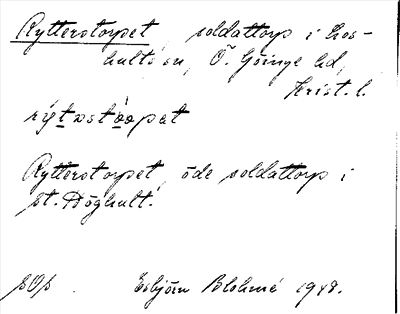 Rytterstorpet, soldattorp i Los-
hults sn, Ö. Göinge hd,
Krist. l.
rýt̲ɜst̲o̲o̲pet
Rytterstorpet, öde soldattorp i
st. Döghult.
SOs. Esbjörn Blohmé 1948.